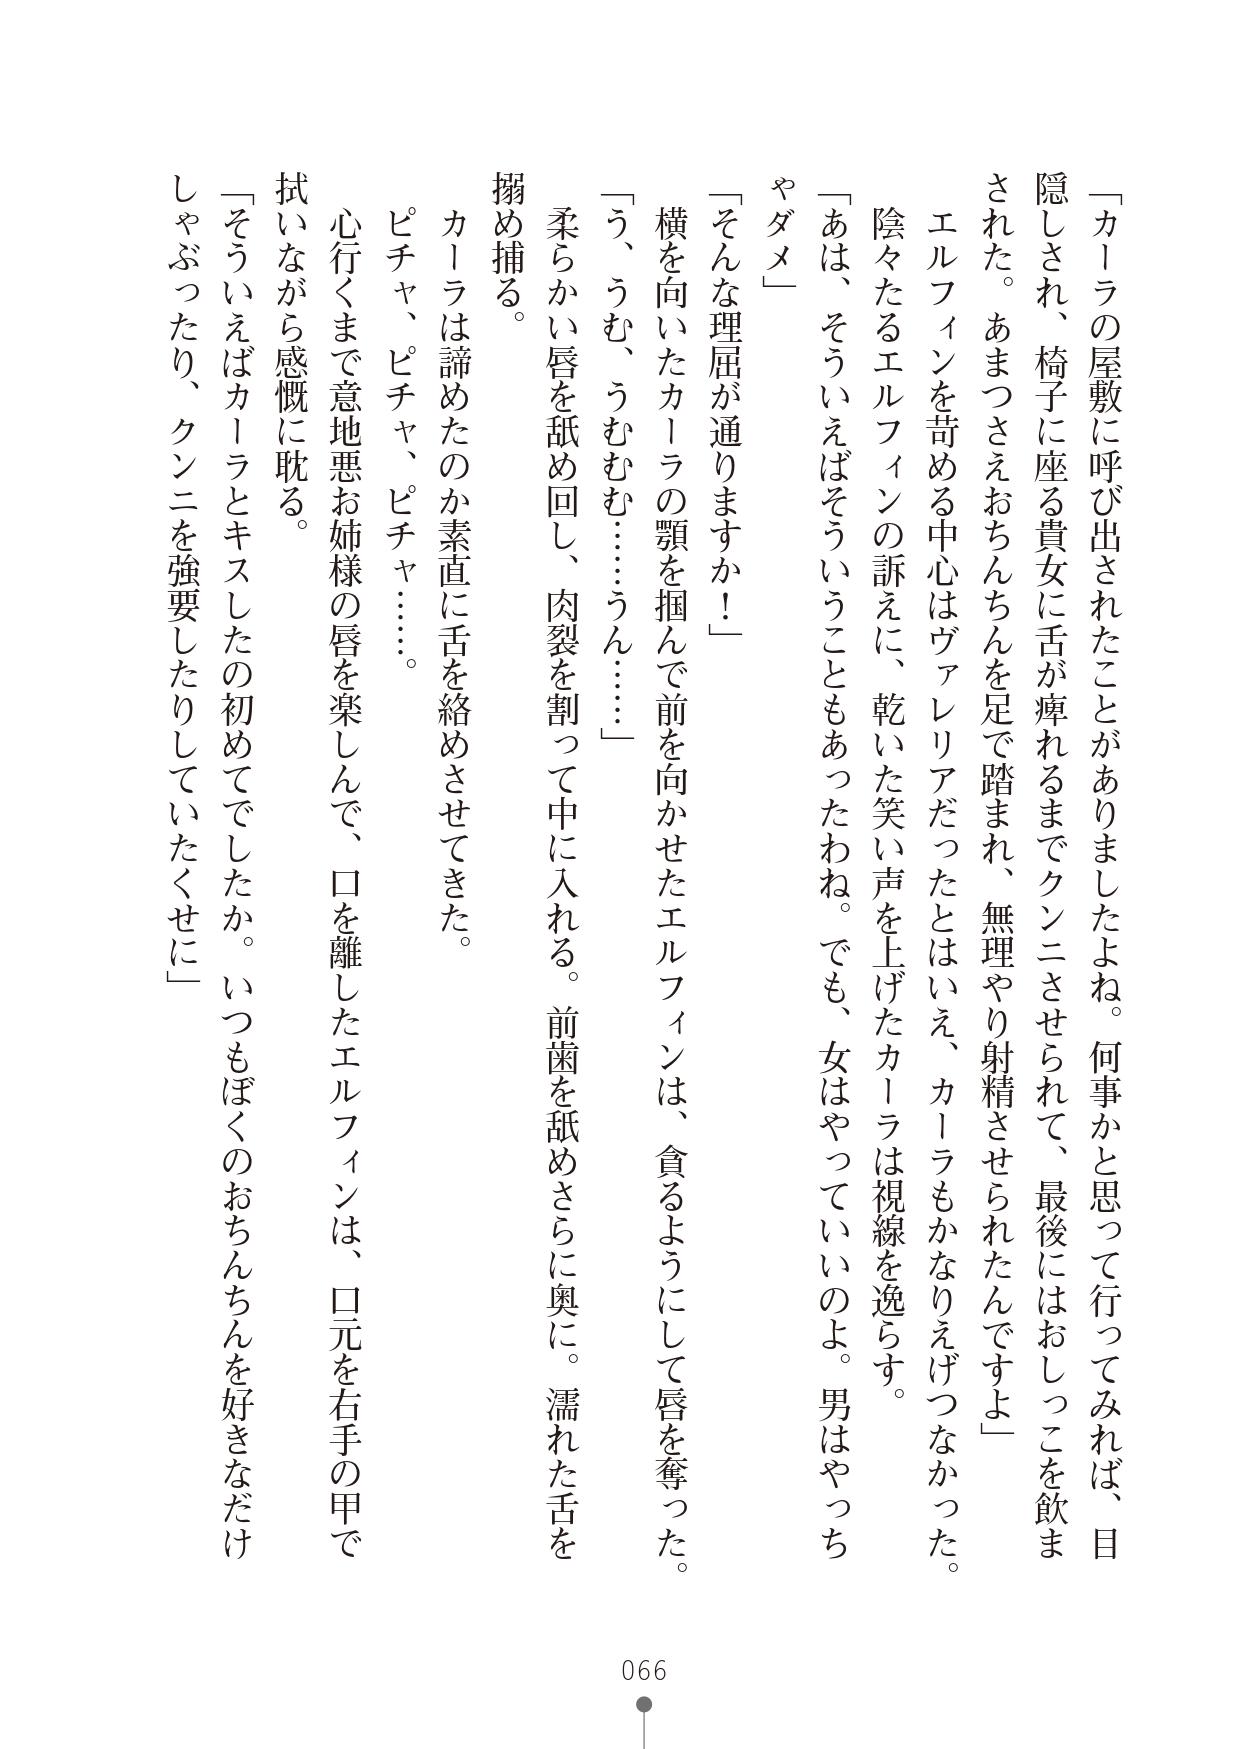 「カーラの屋敷に呼び出されたことがありましたよね。何事かと思って行ってみれば、目
隠しされ、椅子に座る貴女に舌が痺れるまでクンニさせられて、最後にはおしっこを飲ま
された。あまつさえおちんちんを足で踏まれ、無理やり射精させられたんですよ」
エルフィンを苛める中心はヴァレリアだったとはいえ、カーラもかなりえげつなかった。
陰々たるエルフィンの訴えに、乾いた笑い声を上げたカーラは視線を逸らす。
「あは、そういえばそういうこともあったわね。でも、女はやっていいのよ。男はやっち
ゃダメ」
「そんな理屈が通りますか！」
横を向いたカーラの顎を掴んで前を向かせたエルフィンは、貪るようにして唇を奪った。
「う、うむ、うむむむ……うん……」
柔らかい唇を舐め回し、肉裂を割って中に入れる。前歯を舐めさらに奥に。濡れた舌を
搦め捕る。
カーラは諦めたのか素直に舌を絡めさせてきた。
ピチャ、ピチャ、ピチャ……。
心行くまで意地悪お姉様の唇を楽しんで、口を離したエルフィンは、口元を右手の甲で
拭いながら感慨に耽る。
「そういえばカーラとキスしたの初めてでしたか。いつもぼくのおちんちんを好きなだけ
しゃぶったり、クンニを強要したりしていたくせに」
066